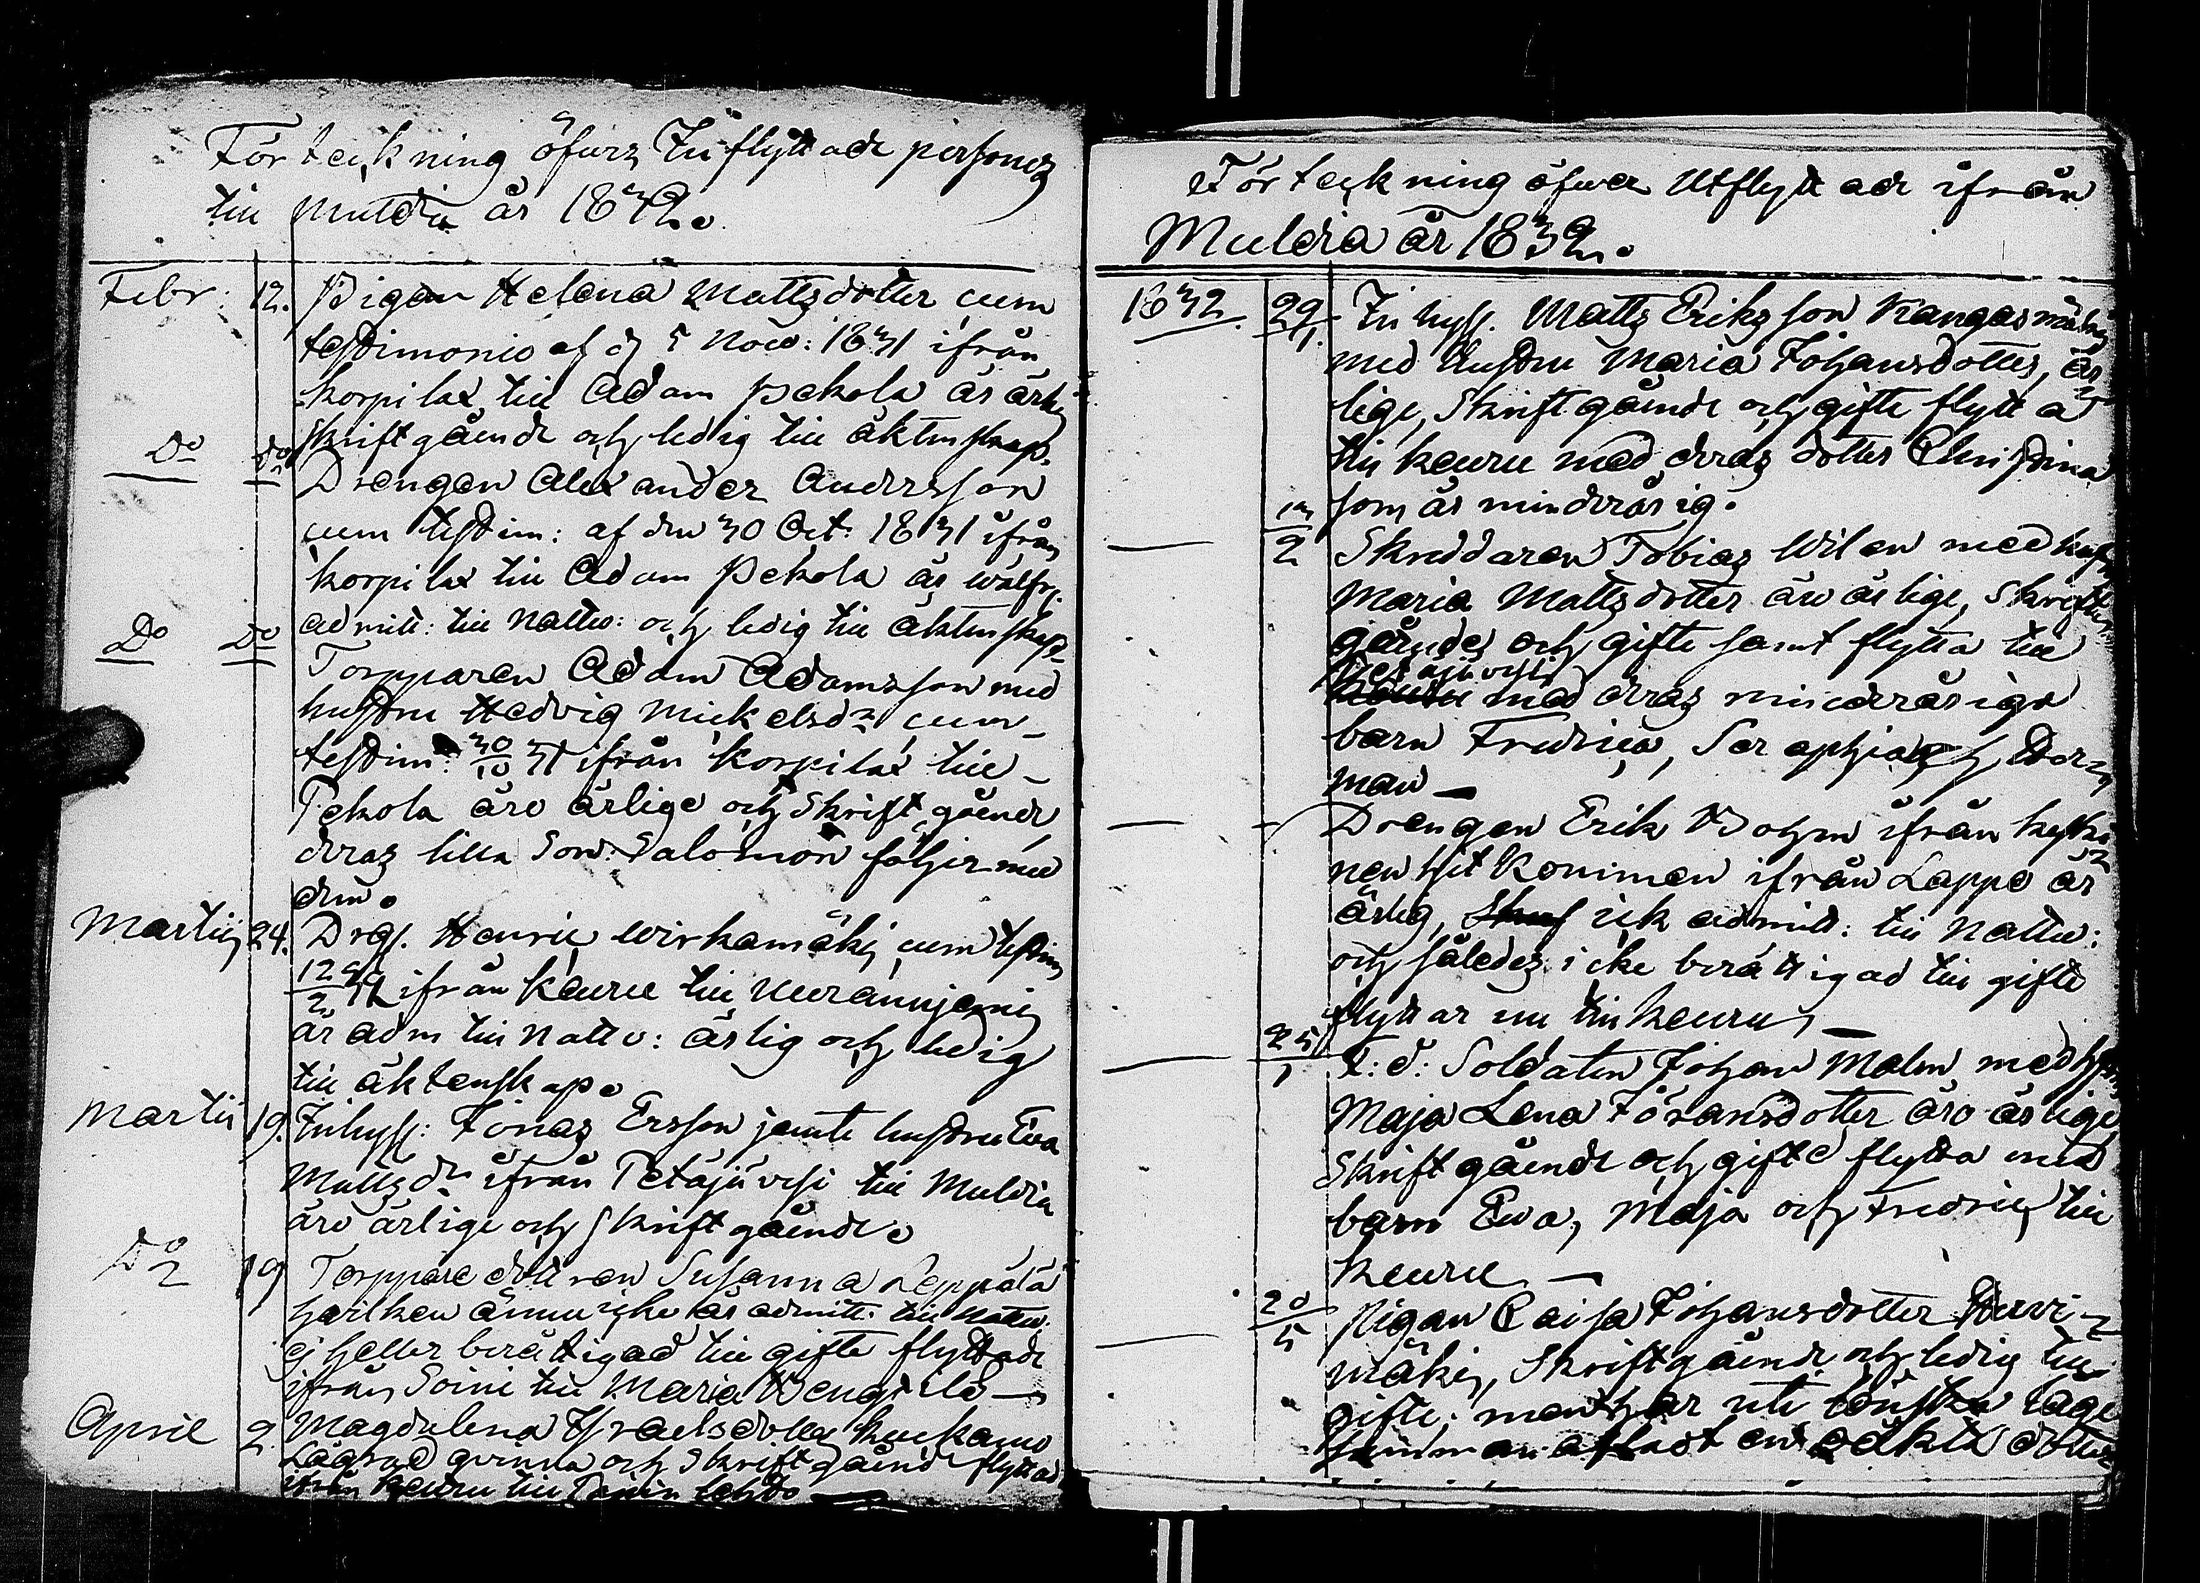 Förteckning öfwer Inflyttade personer
till Multia år 1832.
Febr: 12. Pigan Helena Mattsdotter cum
testimonio af d 5 Nov: 1831 ifrån
Korpilax till Adam Pekola är ärlig
skriftgående och ledig till äktenskap.
Do Do Drengen Alexander Andersson
cum testim: af den 30 Oct: 1831 ifrån
Korpilax till Adam Pekola är wälfr.
admitt: till Nattv: och ledig till äktenskap
Do Do Torpparen Adam Adamsson med
hustru Hedvig Mickelsdr cum
testim: 30/10 31 ifrån Korpilax till
Pekola äro ärlige och skriftgående
deras lilla Son: Salomon följer med
dem.
Martii 24. Drgs. Henric Wirkamäki cum testim
12/2 32 ifrån Keuru till
är adm till Nattv: ärlig och ledig
till äktenskap.
Martii 19. Inhyss: Jonas Ersson jemte hustru Eva
Mattsdr ifrån Petäjävesi till Multia
äro ärlige och skriftgående.
Do 19 Torppare dottren Susanna Leppälä
hwilken ännu icke är admitt: till Nattv.
ej heller berättigad till gifte flyttade
ifrån Soini till Maria
April 2. Magdalena Israelsdotter
Lägrad qvinna och skriftgående flyttad
ifrån Keuru till
Förteckning öfwer Utflyttade ifrån
Multia år 1832.
1832. 29/1. Inhyss. Matts Eriksson Kangasmäki
med Hustru Maria Johansdotter, är
lige, Skriftgående och gifte flytta
till Keuru med deras dotter Christina
som är minderårig.
2 Skreddaren Tobias Wilen med hust
Maria Mattsdotter äro ärlige, Skrifts
gåendes och gifte samt flytta till
Petäjävesi
Keuru med deras minderåriga
barn Fredrica, Seraphia och Her
man
Drengen Erik Bohm ifrån Kyki
nen hit kommen ifrån Lappo är
ärlig, ick admitt: till Nattv:
och således icke berättigad till gifte
flyttar nu till Keuru
25/1 F: d: Soldaten Johan Malm med hust
Maja Lena Göransdotter äro ärlige
skriftgående och gifte flytta med
barn Eva, Maja och Fredric, till
Keuru
20/5 Pigan Caisa Johansdotter Hirvi-
mäki, skriftgående och ledig till
gifte: men har uti läge
oäkta dotter